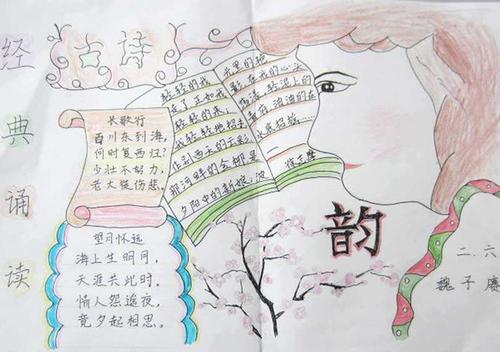 经
典
诵
读
古诗
长歌行
百川东到海,
何时复西归?
少壮不努力,
老大徒伤悲。
望月怀远
海上生明月,
天涯共此时。
情人怨遥夜,
竟夕起相思。
轻轻的我
走了正如我
轻轻的来,
我轻轻地招手
作别西天的云彩
那河畔的金柳是
夕阳中的新娘,波
光里的艳
影在我的心头
荡漾。软泥上的
青荇,油油的在
水底招摇……
—徐志摩
韵
二.六
魏子